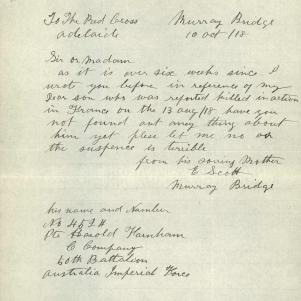 To The Red Cross Murray Bridge
adelaide 10 oct /18
Sir or madam
as it is over six weeks since I
wrote you before in reference of my
Dear son who was reported killed in action
in France on the 13 aug/18 have you
not found out any thing about
him yet plese let me no as
the suspence is terible
from his loving Mother
E Scott
Murray Bridge
his name and Number
No
Pte Harold
C Company
60th Battalion
Australia Imperial Force